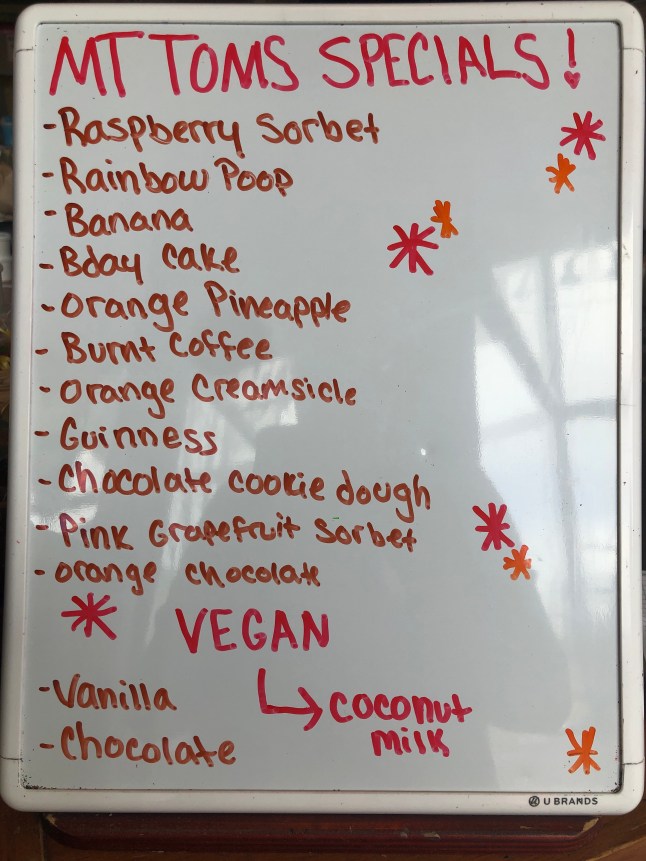 MT TOMS SPECIALS!
-Raspberry Sorbet
-Rainbow Poop
-Banana
-Bday cake
-orange Pineapple
-Burnt Coffee
-orange Creamsicle
-Guinness
-Chocolate cookie dough
-Pink Grapefruit Sorbet
-orange chocolate
VEGAN
-Vanilla
coconut
milk
-Chocolate
U BRANDS